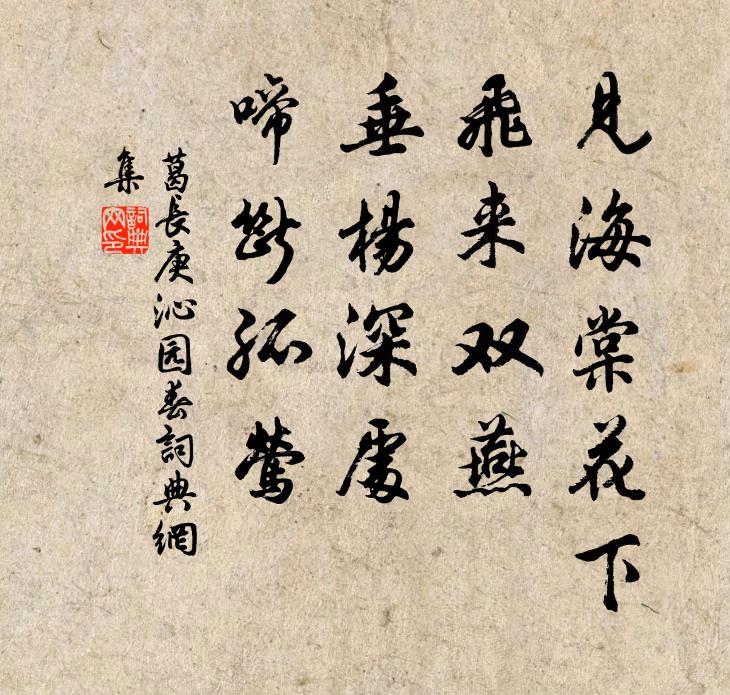 見海棠花下
飛来双燕
垂楊深處
啼断孤鶯
葛長庚沁园春詞典網
集
詞典
网印